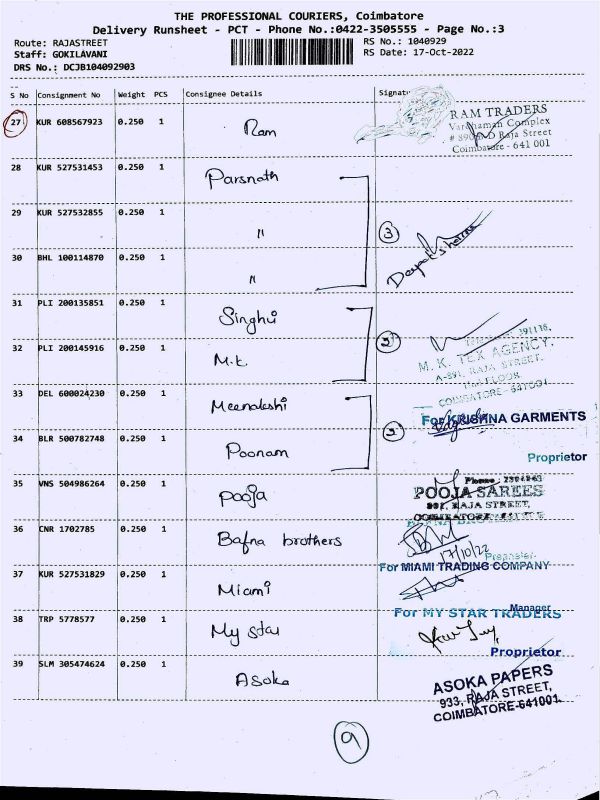 THE PROFESSIONAL COURIERS, Coimbatore
Delivery Runsheet - PCT - Phone No.:0422-3505555 - Page No.:3
Route: RAJASTREET
RS No.: 1040929
Staff: GOKILAVANI
RS Date: 17-Oct-2022
DRS No.: DCJB104092903
S No Consignment No Weight PCS Consignee Details Signatu
27 KUR 608567923 0.250 1 Ram
RAM TRADERS
Vardhaman Complex
Raja Street
Coimbatore - 641 001
28 KUR 527531453 0.250 1 Parsnath
29 KUR 527532855 0.250 1 "
3
30 BHL 100114870 0.250 1 "
Deepak Sharma
31 PLI 200135851 0.250 1 Singhvi
32 PLI 200145916 0.250 1 M.K.
2
391136,
M. K. TEX AGENCY,
A-891, RAJA STREET,
FLOOR,
COIMBATORE - 641001
33 DEL 600024230 0.250 1 Meenakshi
For KRISHNA GARMENTS
34 BLR 500782748 0.250 1 Poonam
Proprietor
35 VNS 504986264 0.250 1 Pooja
Phone : 2394243
POOJA SAREES
891, RAJA STREET,
36 CNR 1702785 0.250 1 Bafna brothers
17/10/22
37 KUR 527531829 0.250 1 Miami
For MIAMI TRADING COMPANY
Manager
38 TRP 5778577 0.250 1 My star
For MY STAR TRADERS
Proprietor
39 SLM 305474624 0.250 1 Asoka
ASOKA PAPERS
933, RAJA STREET,
COIMBATORE-641001.
9